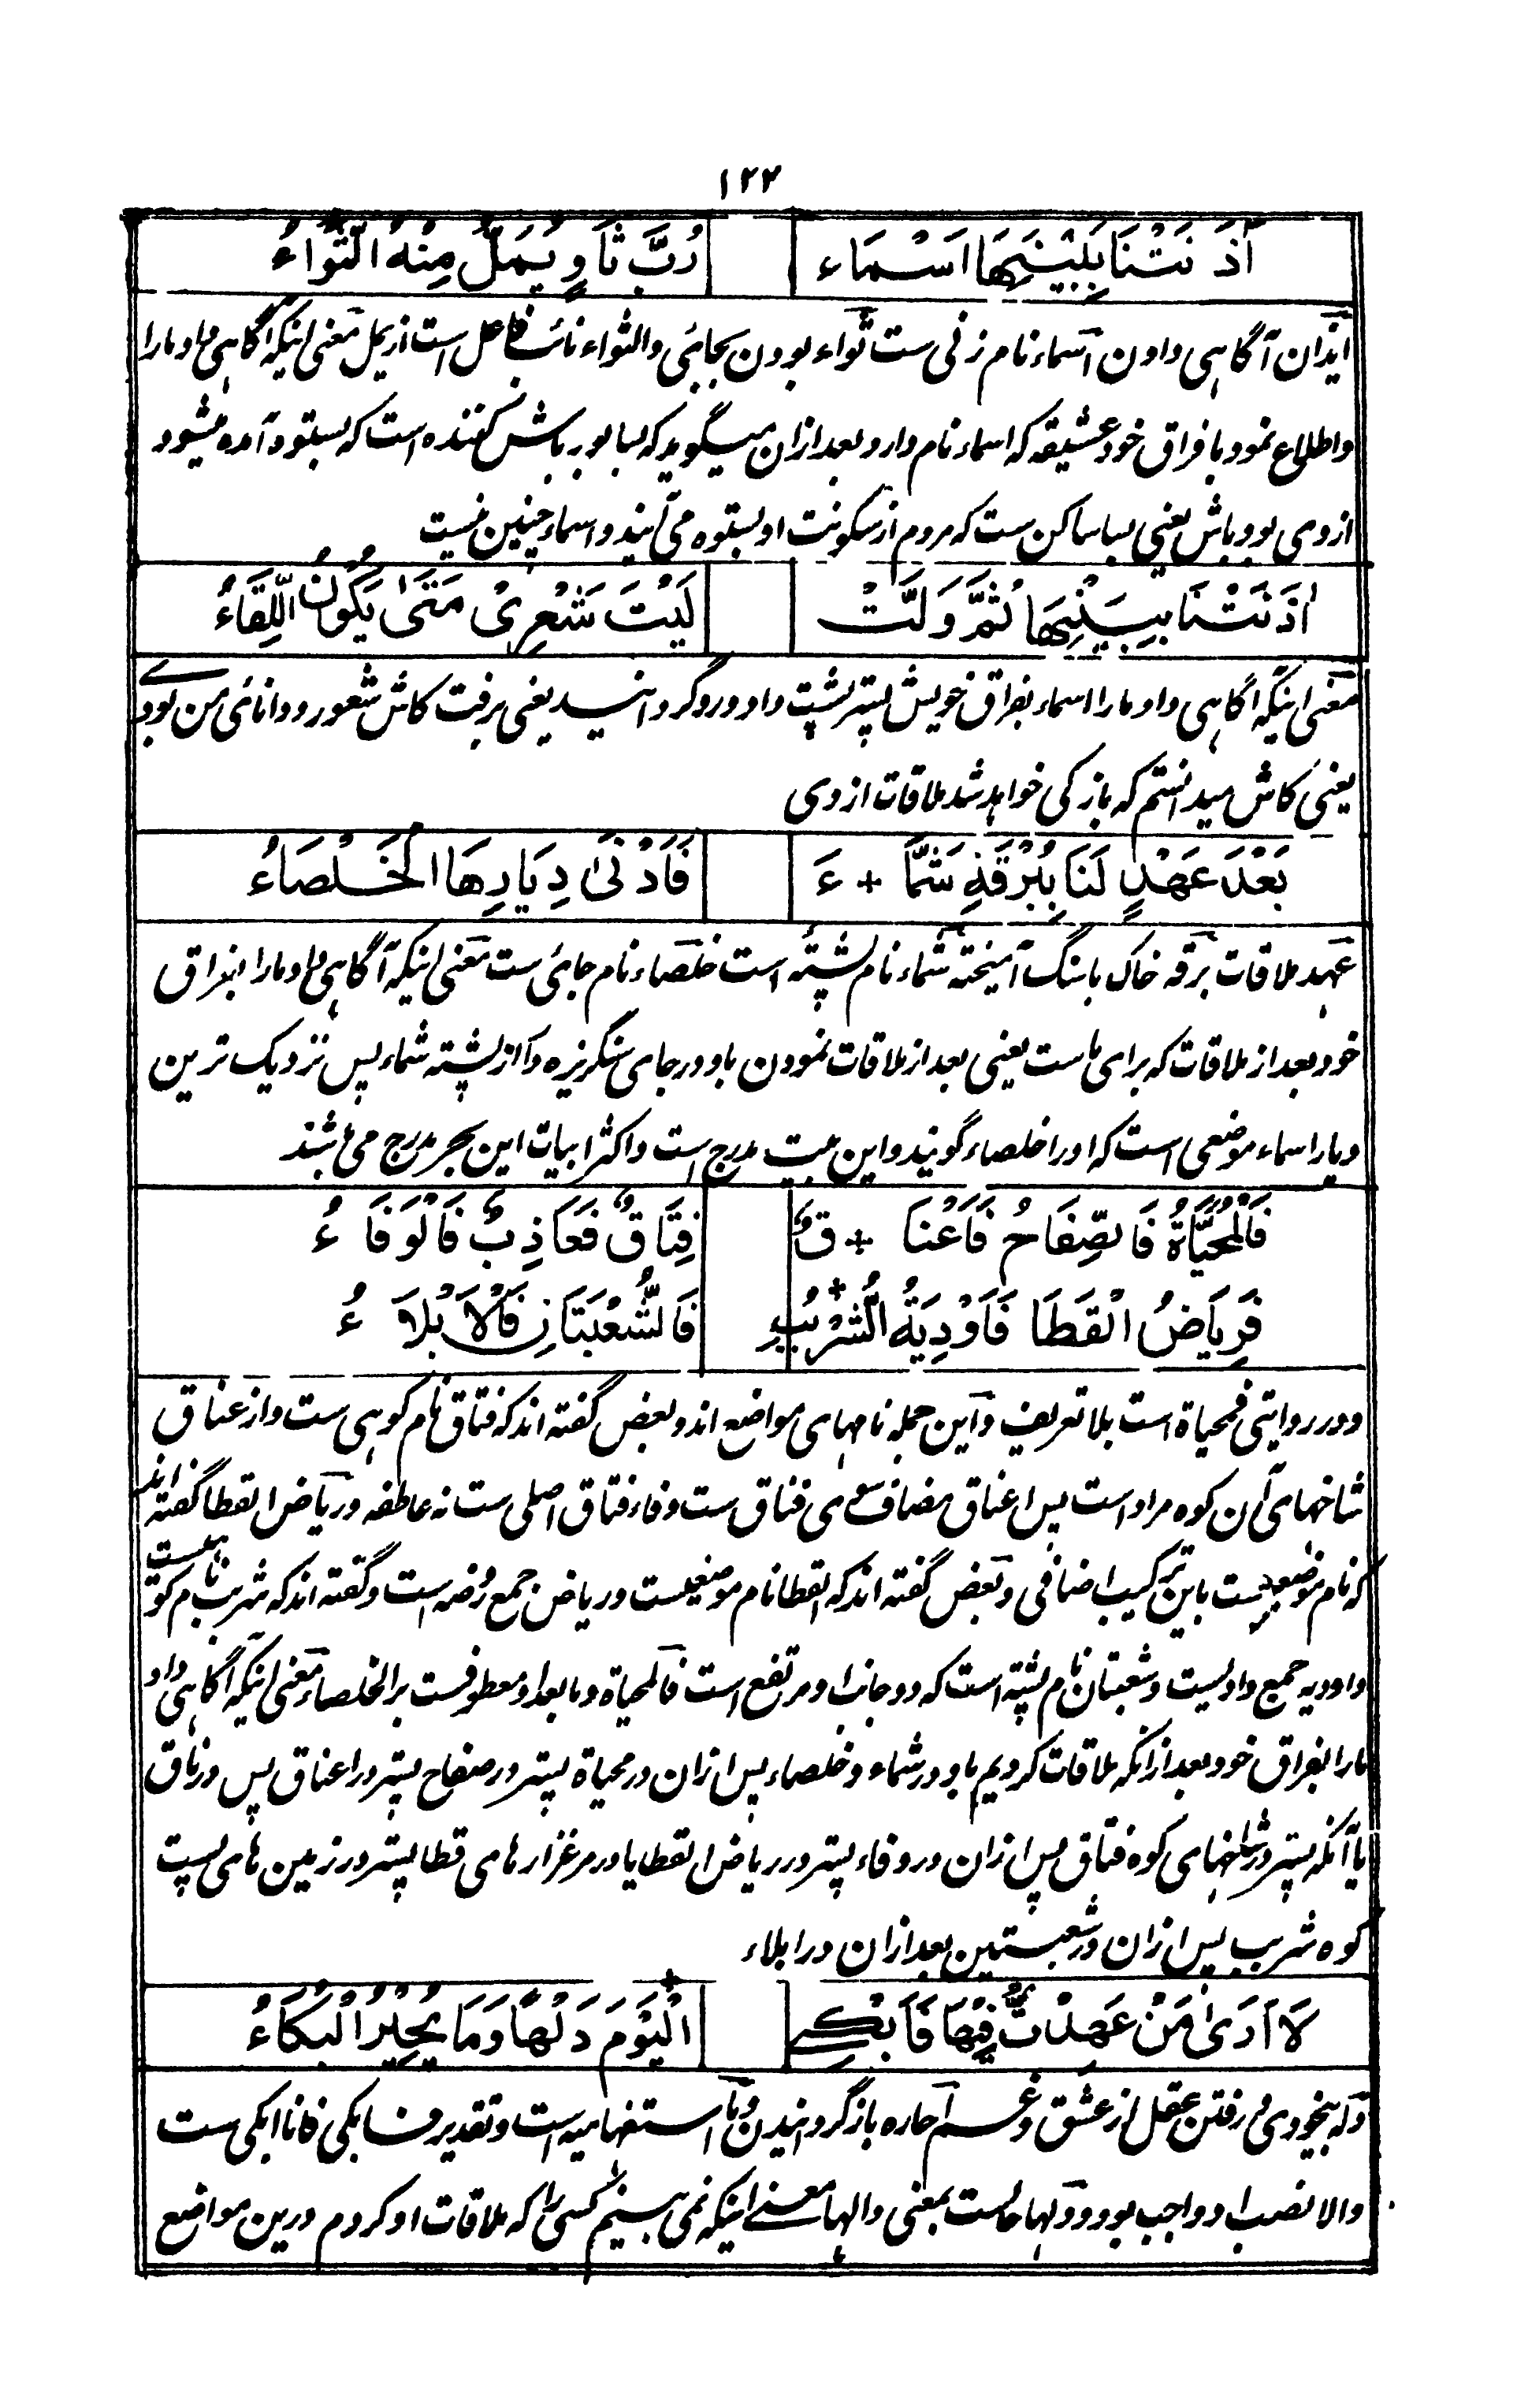 ۱۲۲
آذَنَتْنَا بِبَيْنِهَا اَسْمَاء رُبَّ ثَاوٍ يُمَلُّ مِنْهُ الثَّوَاءُ
ایذان آگاهی دادن اسماء نام زنی ست ثواء بودن بجائی والثواء نائب فاعل است از یمل معنی اینکه آگاهی داد ما را
و اطلاع نمود با فراق خود عشیقه که اسماء نام دارد و بعد ازان میگوید که بسا بود باش کننده است که بستوه آمده میشود
از وی بود باش یعنی بسا ساکن ست که مردم از سکونت او بستوه می آیند و اسماء چنین نیست
اٰذَنَتْنَا بِبَيْنِهَا ثُمَّ وَلَّتْ لَيْتَ شَعْرِیْ مَتٰى يَكُوْنُ اللِّقَاءُ
معنی اینکه آگاهی داد ما را اسماء بفراق خویش پستر پشت داد و رو گردانید یعنی برفت کاش شعور و دانائی من بودے
یعنی کاش میدانستم که باز کی خواهد شد ملاقات از وی
بَعْدَ عَهْدٍ لَنَا بِبُرْقَةِ شَمَّا + ءَ فَاَدْنٰى دِيَارِهَا الْخَلْصَاءُ
عهد ملاقات برقه خاک با سنگ آمیخته شماء نام پشته است خلصاء نام جائی ست معنی اینکه آگاهی داد ما را بفراق
خود بعد از ملاقات که برای ماست یعنی بعد از ملاقات نمودن با و در جای سنگریزه دار از پشته شماء پس نزدیک ترین
دیار اسماء موضعی است که او را خلصاء گویند و این بیت مدرج است و اکثر ابیات این بحر مدرج می باشند
فَالْمُحَيَّاةُ فَالصِّفَاحُ فَاَعْنَا + قُ فِتَاقٍ فَعَاذِبٌ فَالْوَفَاءُ
فَرِيَاضُ الْقَطَا فَاَوْدِيَةُ الشُّرْبُبِ فَالشُّعْبَتَانِ فَالْاَبْلَاءُ
و در روایتی فمحیاة است بلا تعریف و این جمله نامهای مواضع اند و بعض گفته اند که فتاق نام کوهی ست و از عناق
شاخهای آن کوه مراد است پس اعناق مضاف سوی فتاق ست و فاء فتاق اصلی ست نه عاطفه و ریاض القطا گفته اند
که نام موضعیست باین ترکیب اضافی و بعض گفته اند که القطا نام موضعیست و ریاض جمع روضه است و گفته اند که شربب نام کوهیست
و اودیه جمع وادیست و شعبتان نام پشته است که دو جانب او مرتفع است فالمحیاة و ما بعد او معطوفست بر الخلصاء معنی اینکه آگاهی داد
ما را بفراق خود بعد از آنکه ملاقات کردیم با و در شماء و خلصاء پس ازان در محیاة پستر در صفاح پستر در اعناق پس در فتاق
یا آنکه پستر در شاخهای کوه فتاق پس ازان در وفاء پستر در ریاض القطا یا در مرغزارهای قطا پستر در زمین های پست
کوه شربب پس ازان در شعبتین بعد ازان در ابلاء
لَا اَرٰى مَنْ عَهِدْتُّ فِيْهَا فَاَبْكِي الْيَوْمَ دَلْهًا وَمَا يُحِيْرُ الْبُكَاءُ
دله بیخودی و رفتن عقل از عشق و غم احاره بازگردانیدن و ما استفهامیه است و تقدیر فابکی فانا ابکی ست
والا نصب او واجب بود و دلها حالست بمعنی والها معنے اینکه نمی بینم کسی را که ملاقات او کردم درین مواضع